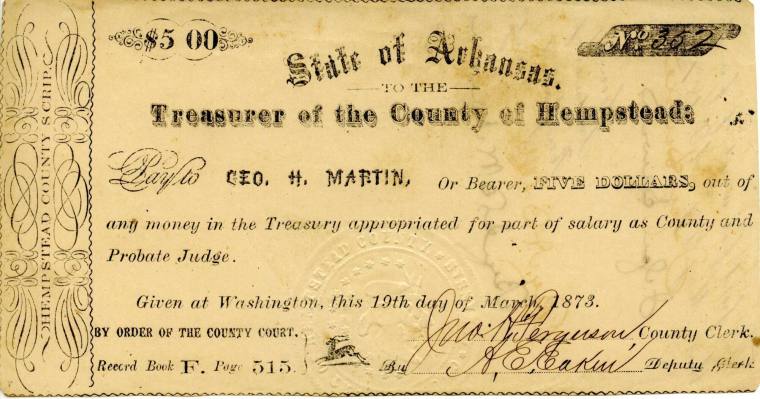 $5 00
No 352
State of Arkansas.
TO THE
Treasurer of the County of Hempstead:
Pay to GEO. H. MARTIN, Or Bearer, FIVE DOLLARS, out of
any money in the Treasury appropriated for part of salary as County and
Probate Judge.
Given at Washington, this 19th day of March, 1873.
BY ORDER OF THE COUNTY COURT. Ferguson, County Clerk.
Record Book F. Page 515. By A. E. Eakin Deputy Clerk
HEMPSTEAD COUNTY SCRIP.